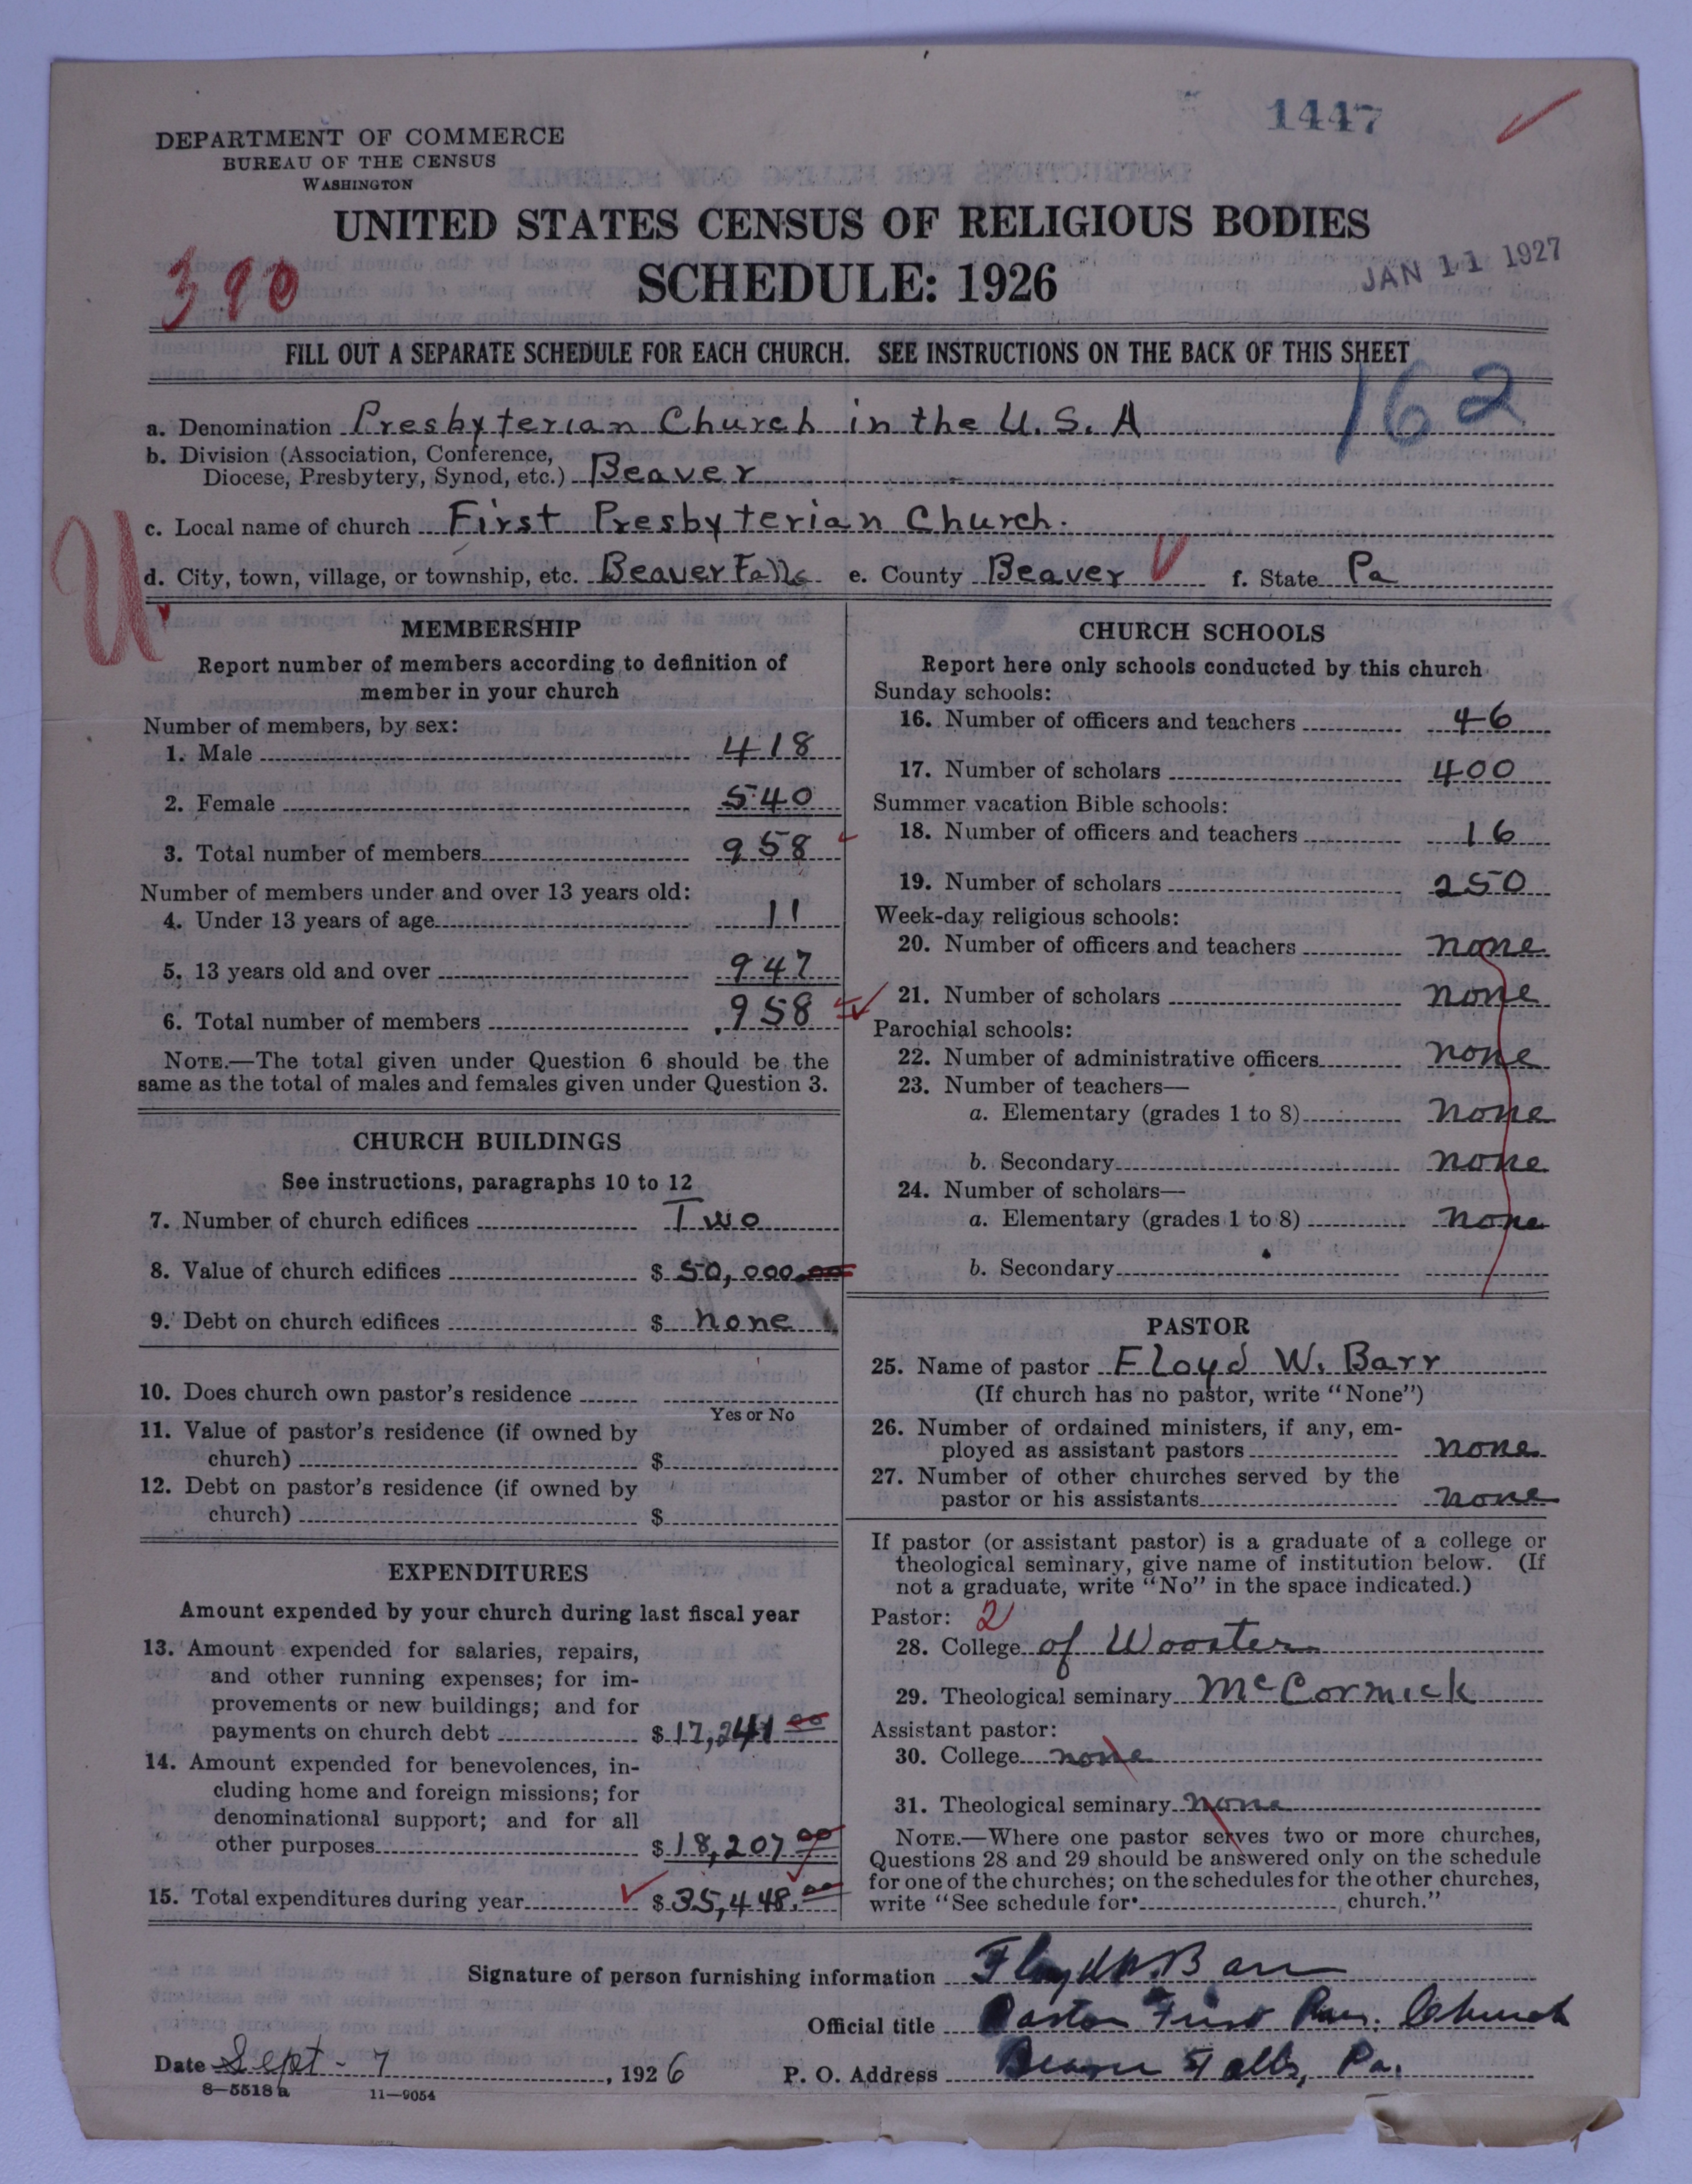 1447
DEPARTMENT OF COMMERCE
BUREAU OF THE CENSUS
WASHINGTON
UNITED STATES CENSUS OF RELIGIOUS BODIES
SCHEDULE: 1926
390
JAN 11 1927
FILL OUT A SEPARATE SCHEDULE FOR EACH CHURCH. SEE INSTRUCTIONS ON THE BACK OF THIS SHEET
162
a. Denomination Presbyterian Church in the U.S.A
b. Division (Association, Conference,
Diocese, Presbytery, Synod, etc.) Beaver
c. Local name of church First Presbyterian Church.
U
d. City, town, village, or township, etc. Beaver Falls e. County Beaver f. State Pa
MEMBERSHIP
Report number of members according to definition of
member in your church
Number of members, by sex:
1. Male 418
2. Female 540
3. Total number of members 958
Number of members under and over 13 years old:
4. Under 13 years of age 11
5. 13 years old and over 947
6. Total number of members 958
NOTE.—The total given under Question 6 should be the
same as the total of males and females given under Question 3.
CHURCH BUILDINGS
See instructions, paragraphs 10 to 12
7. Number of church edifices Two
8. Value of church edifices $ 50,000.00
9. Debt on church edifices $ none
10. Does church own pastor's residence
Yes or No
11. Value of pastor's residence (if owned by
church) $
12. Debt on pastor's residence (if owned by
church) $
EXPENDITURES
Amount expended by your church during last fiscal year
13. Amount expended for salaries, repairs,
and other running expenses; for im-
provements or new buildings; and for
payments on church debt $ 17,241 00
14. Amount expended for benevolences, in-
cluding home and foreign missions; for
denominational support; and for all
other purposes $ 18,207 00
15. Total expenditures during year $ 35,448.00
CHURCH SCHOOLS
Report here only schools conducted by this church
Sunday schools:
16. Number of officers and teachers 46
17. Number of scholars 400
Summer vacation Bible schools:
18. Number of officers and teachers 16
19. Number of scholars 250
Week-day religious schools:
20. Number of officers and teachers none
21. Number of scholars none
Parochial schools:
22. Number of administrative officers none
23. Number of teachers—
a. Elementary (grades 1 to 8) none
b. Secondary none
24. Number of scholars—
a. Elementary (grades 1 to 8) none
b. Secondary
PASTOR
25. Name of pastor Floyd W. Barr
(If church has no pastor, write "None")
26. Number of ordained ministers, if any, em-
ployed as assistant pastors none
27. Number of other churches served by the
pastor or his assistants none
If pastor (or assistant pastor) is a graduate of a college or
theological seminary, give name of institution below. (If
not a graduate, write "No" in the space indicated.)
Pastor: 2
28. College of Wooster
29. Theological seminary McCormick
Assistant pastor:
30. College none
31. Theological seminary none
NOTE.—Where one pastor serves two or more churches,
Questions 28 and 29 should be answered only on the schedule
for one of the churches; on the schedules for the other churches,
write "See schedule for church."
Signature of person furnishing information Floyd W. Barr
Official title Pastor First Pres. Church
Date Sept - 7, 1926 P. O. Address Beaver Falls, Pa.
8—5518 a 11—9054